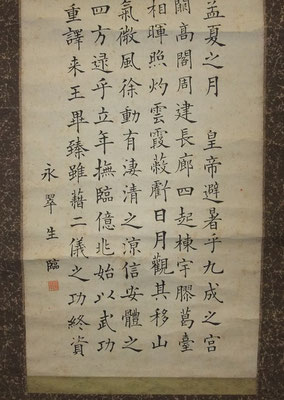 孟夏之月　皇帝避暑乎九成之宮
闕高閣周建長廊四起棟宇膠葛臺
相暉照灼雲霞蔽虧日月觀其移山
氣微風徐動有凄清之涼信安體之
四方逮乎立年撫臨億兆始以武功
重譯来王畢臻雖藉二儀之功終資
永翠生臨